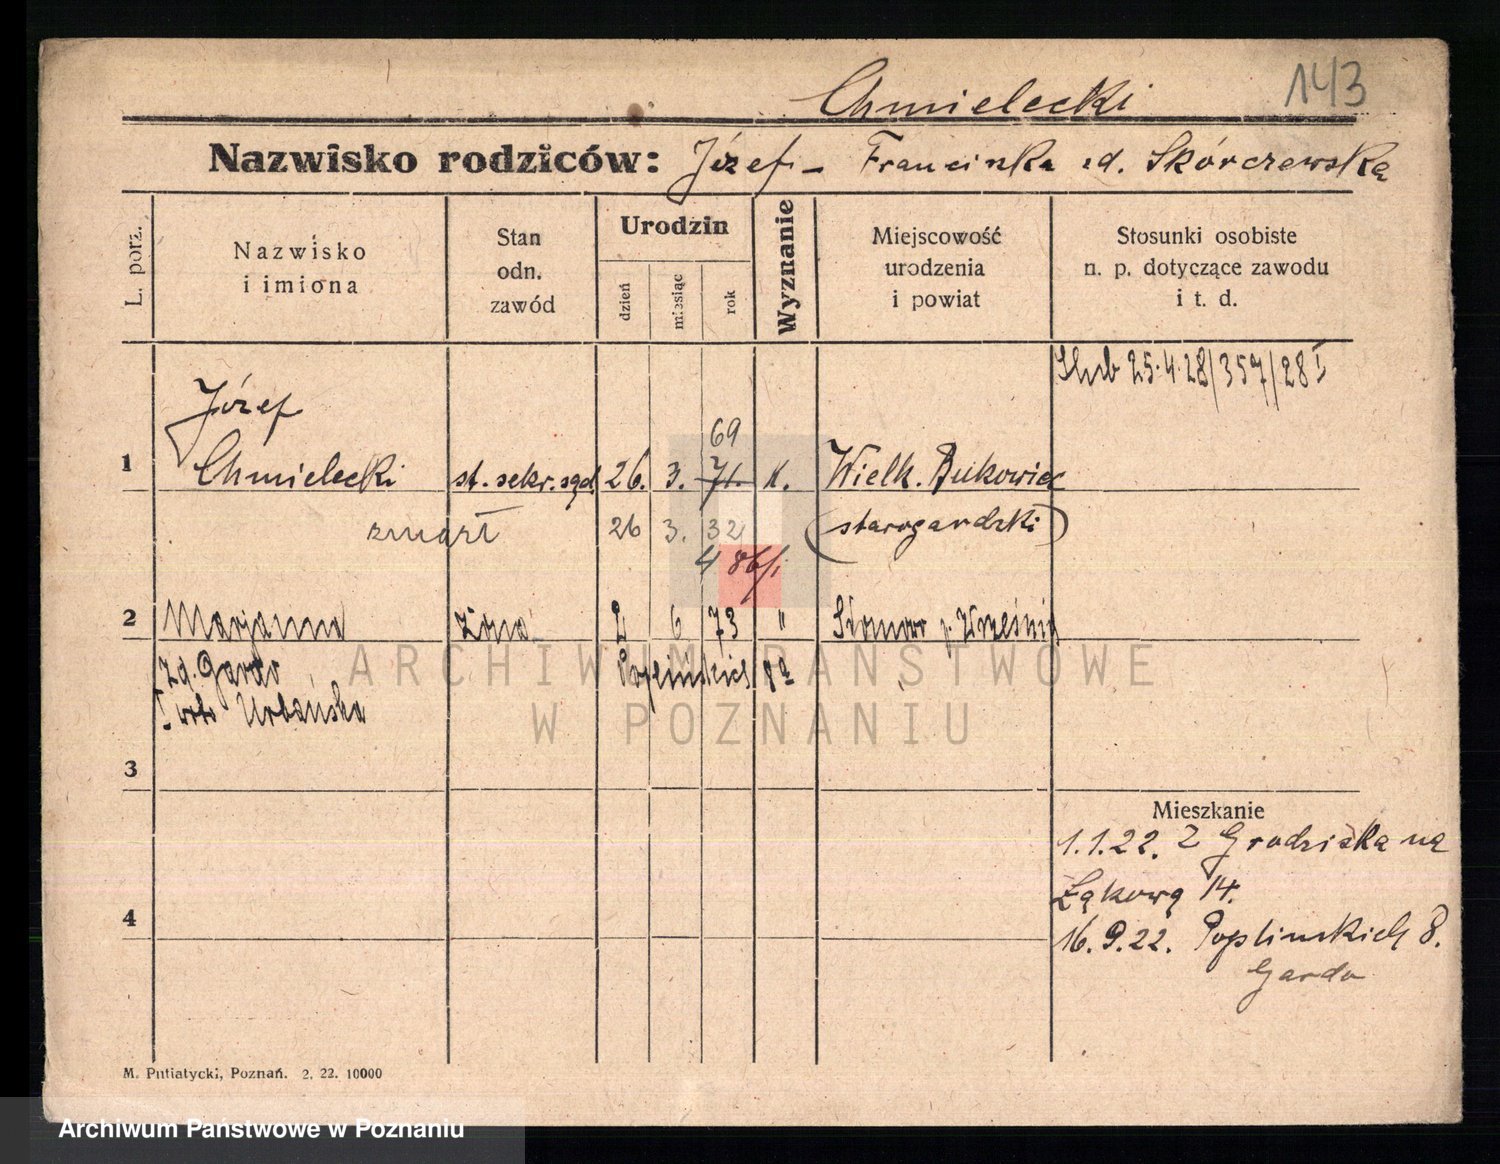 143
Chmielecki
Nazwisko rodziców: Józef - Franciszka zd. Skórczewska
L. porz.
Nazwisko
i imiona
Stan
odn.
zawód
Urodzin
dzień
miesiąc
rok
Wyznanie
Miejscowość
urodzenia
i powiat
Stosunki osobiste
n. p. dotyczące zawodu
i t. d.
Ślub 25.4.28/357/28 I
Józef
69
1 Chmielecki st. sekr. sąd. 26. 3. 71. k. Wielk. Bukowiec
zmarł 26 3. 32 (starogardzki)
4 86/1
2 Marjanna żona 2 6 73 " Września
zd. Garda Poplińskich 8a
I voto Urbańska
ARCHIWUM PAŃSTWOWE
W POZNANIU
3
Mieszkanie
1.1.22. z Grodziska na
Łąkową 14.
4
16.9.22. Poplinskich 8.
Garda
M. Putiatycki, Poznań. 2. 22. 10000
Archiwum Państwowe w Poznaniu